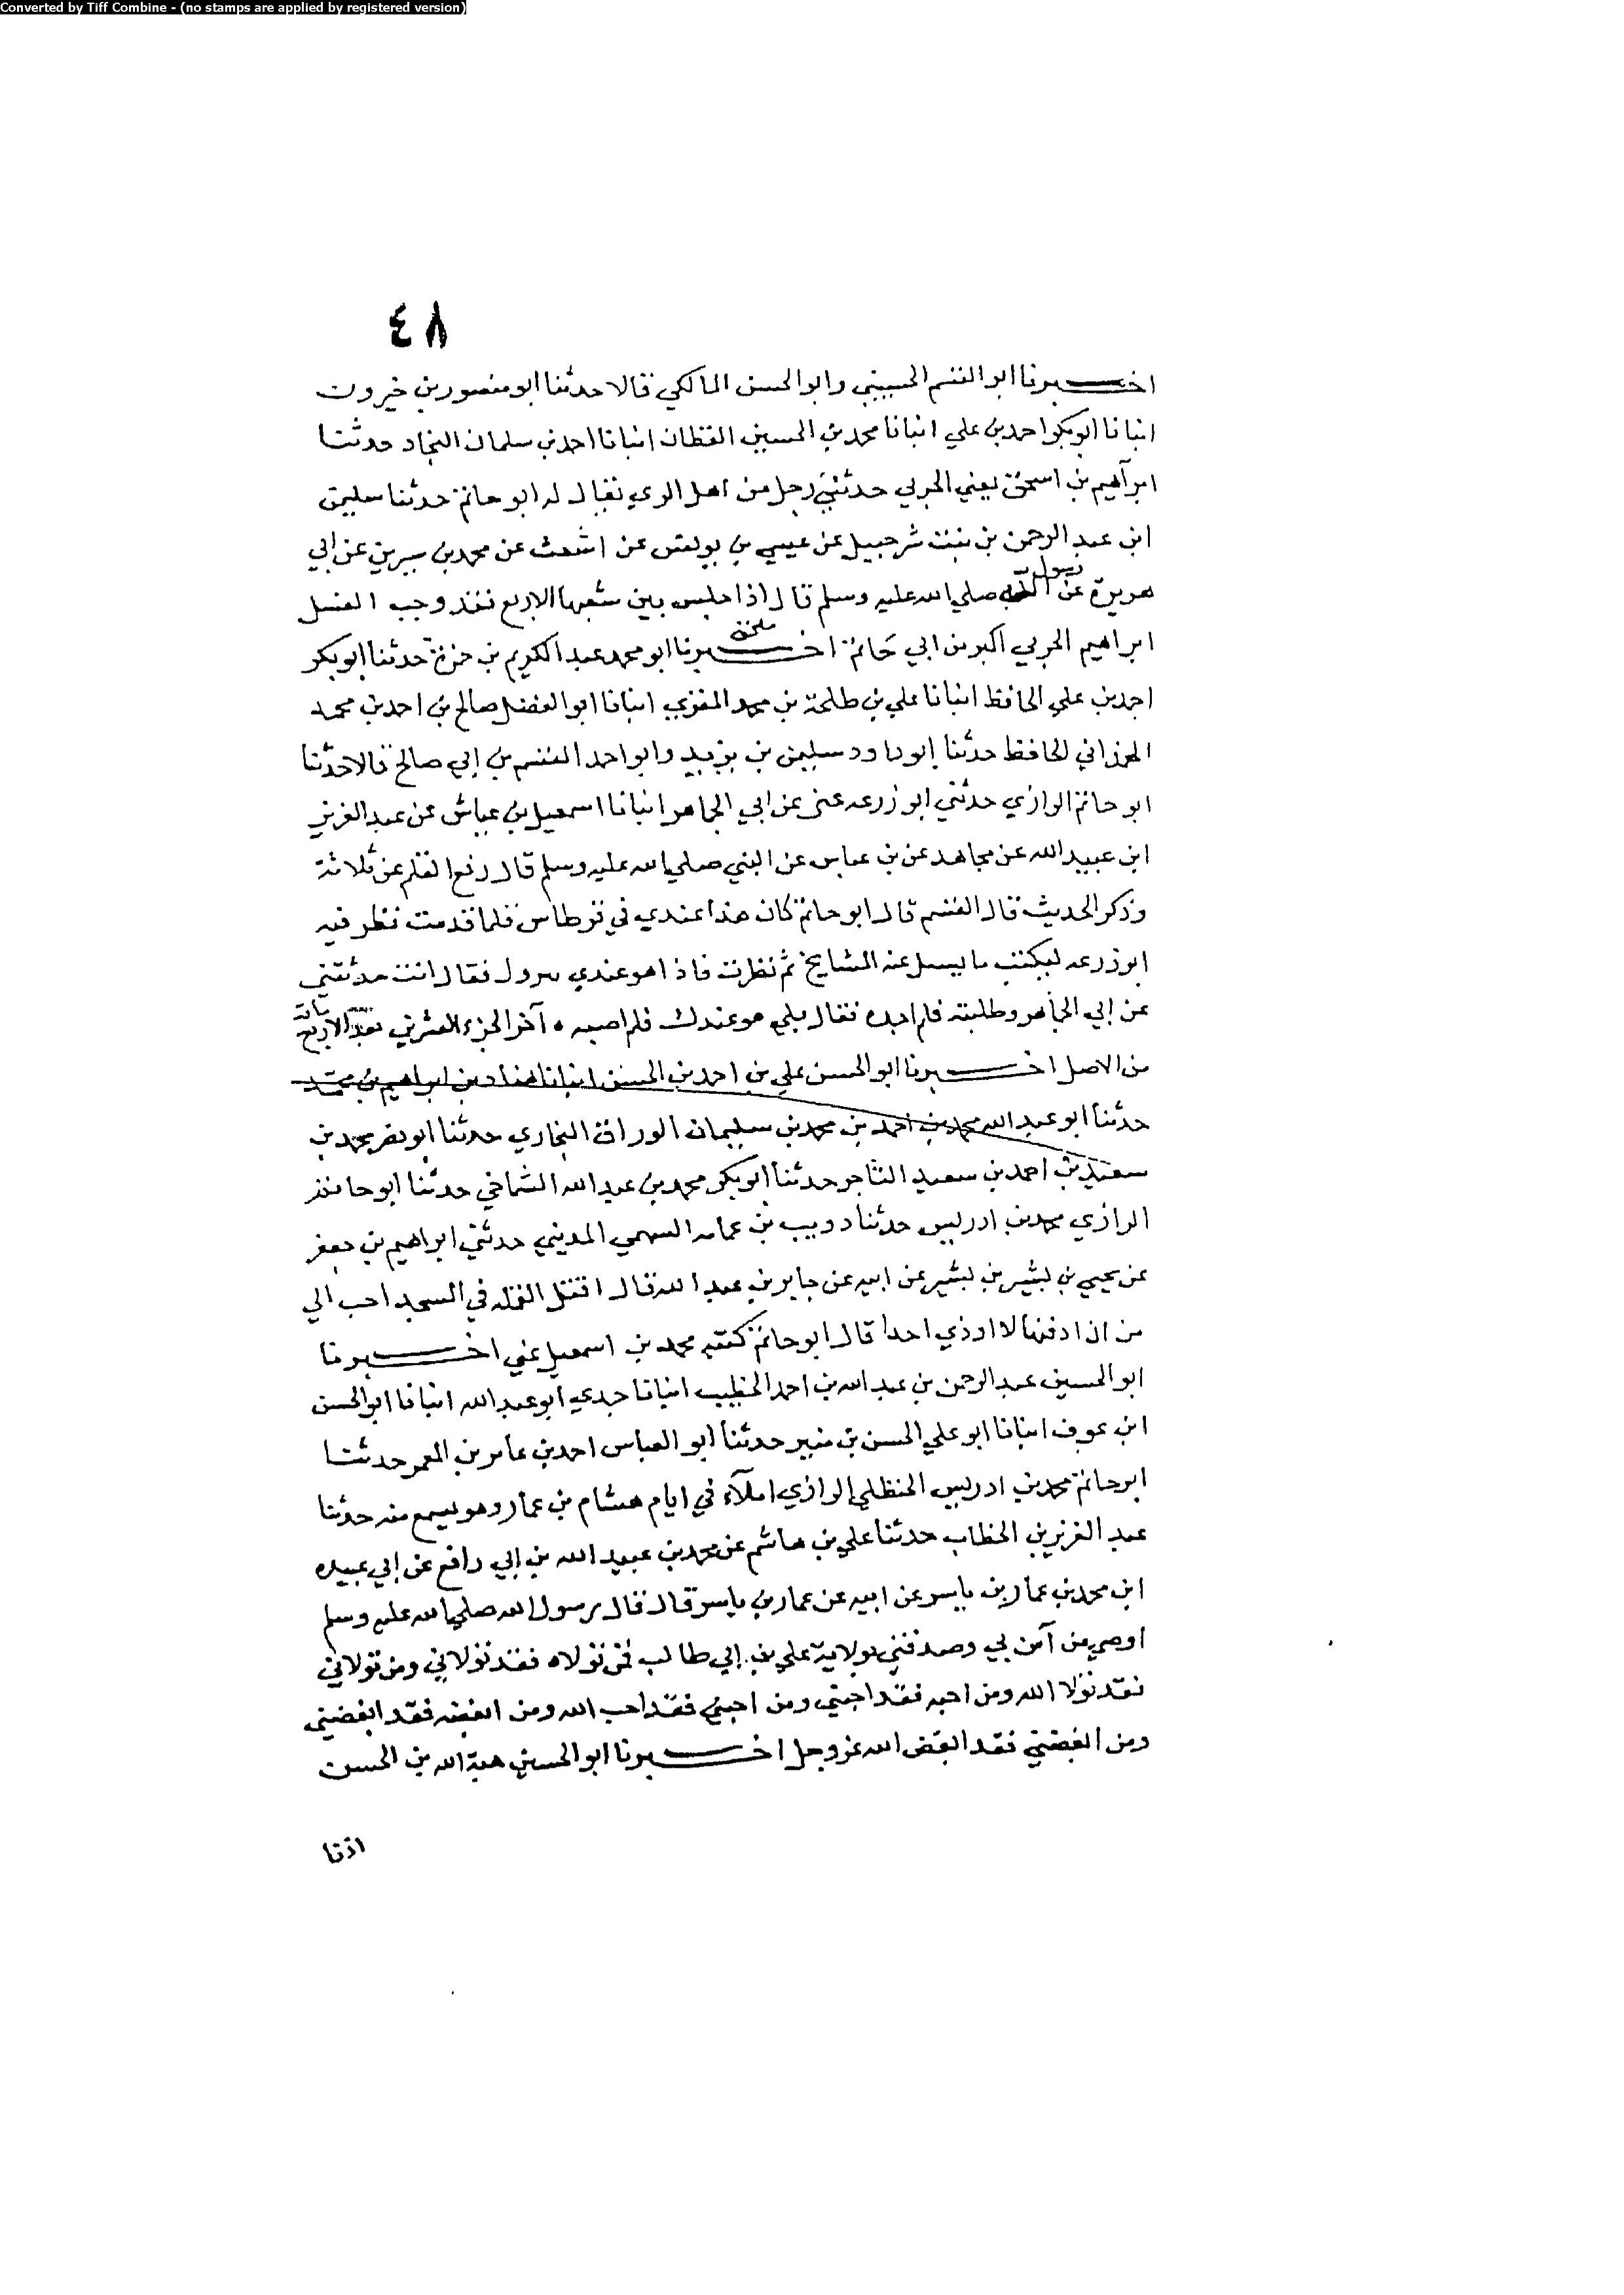 Converted by Tiff Combine - (no stamps are applied by registered version)
٤٨
اخبرنا ابو القسم الحسيني وابو الحسن المالكي قالا حدثنا ابو منصور بن خيرون
انبانا ابو بكر احمد بن علي انبانا محمد بن الحسين القطان انبانا احمد بن سلمان النجاد حدثنا
ابراهيم بن اسحق يعني الحربي حدثني رجل من اهل الري يقال له ابو حاتم حدثنا سليمن
ابن عبد الرحمن بن بنت شرحبيل عن عيسي بن يونس عن اشعث عن محمد بن سيرين عن ابي
هريرة عن رسول الله صلي الله عليه وسلم قال اذا جلس بين شعبها الاربع فقد وجب الغسل
ابراهيم الحربي اكبر من ابي حاتم اخبرنا ابو محمد عبد الكريم بن حمزة حدثنا ابو بكر
احمد بن علي الحافظ انبانا علي بن طلحة بن محمد المقري انبانا ابو الفضل صالح بن احمد بن محمد
الهمذاني الحافظ حدثنا ابو داود سليمن بن يزيد وابو احمد القسم بن ابي صالح قالا حدثنا
ابو حاتم الرازي حدثني ابو زرعه عني عن ابي الجماهر انبانا اسمعيل بن عياش عن عبد العزيز
ابن عبيد الله عن مجاهد عن بن عباس عن النبي صلي الله عليه وسلم قال رفع القلم عن ثلاثة
وذكر الحديث قال القسم قال ابو حاتم كان هذا عندي في قرطاس فلما قدمت نظر فيه
ابو زرعه ليكتب ما يسل عنه المشايخ ثم نظرت فاذا هو عندي فقال انت حدثتني
عن ابي الجماهر وطلبته فلم اجده فقال بلي هو عندك فلم اصبه ٥ آخر الجزء العشرين بعد الاربع ماية
من الاصل اخبرنا ابو الحسن علي بن احمد بن الحسن انبانا هناد بن ابراهيم بن محمد
حدثنا ابو عبد الله محمد بن احمد بن محمد بن سليمان الوراق البخاري حدثنا ابو نصر محمد بن
سعيد بن احمد بن سعيد التاجر حدثنا ابو بكر محمد بن عبد الله الشافعي حدثنا ابو حاتم
الرازي محمد بن ادريس حدثنا دويب بن عمامه السهمي المديني حدثني ابراهيم بن جعفر
عن يحيي بن بشير بن بشير عن ابيه عن جابر بن عبد الله قال اقتل القمله في المسجد احب الي
من ان ادفنها لا اوذي احدا قال ابو حاتم كتبه محمد بن اسمعيل عني اخبرنا
ابو الحسين عبد الرحمن بن عبد الله بن احمد الخطيب انبانا جدي ابو عبد الله انبانا ابو الحسن
ابن عوف انبانا ابو علي الحسن بن منير حدثنا ابو العباس احمد بن عامر بن المعمر حدثنا
ابو حاتم محمد بن ادريس الحنظلي الرازي املآء في ايام هشام بن عمار وهو يسمع منه حدثنا
عبد العزيز بن الخطاب حدثنا علي بن هاشم عن محمد بن عبيد الله بن ابي رافع عن ابي عبيده
ابن محمد بن عمار بن ياسر عن ابيه عن عمار بن ياسر قال قال رسول الله صلي الله عليه وسلم
اوصي من آمن بي وصدقني بولاية علي بن ابي طالب فمن تولاه فقد تولاني ومن تولاني
فقد تولا الله ومن احبه فقد احبني ومن احبني فقد احب الله ومن ابغضه فقد ابغضني
ومن ابغضني فقد ابغض الله عز وجل اخبرنا ابو الحسين هبة الله بن الحسن
اذنا